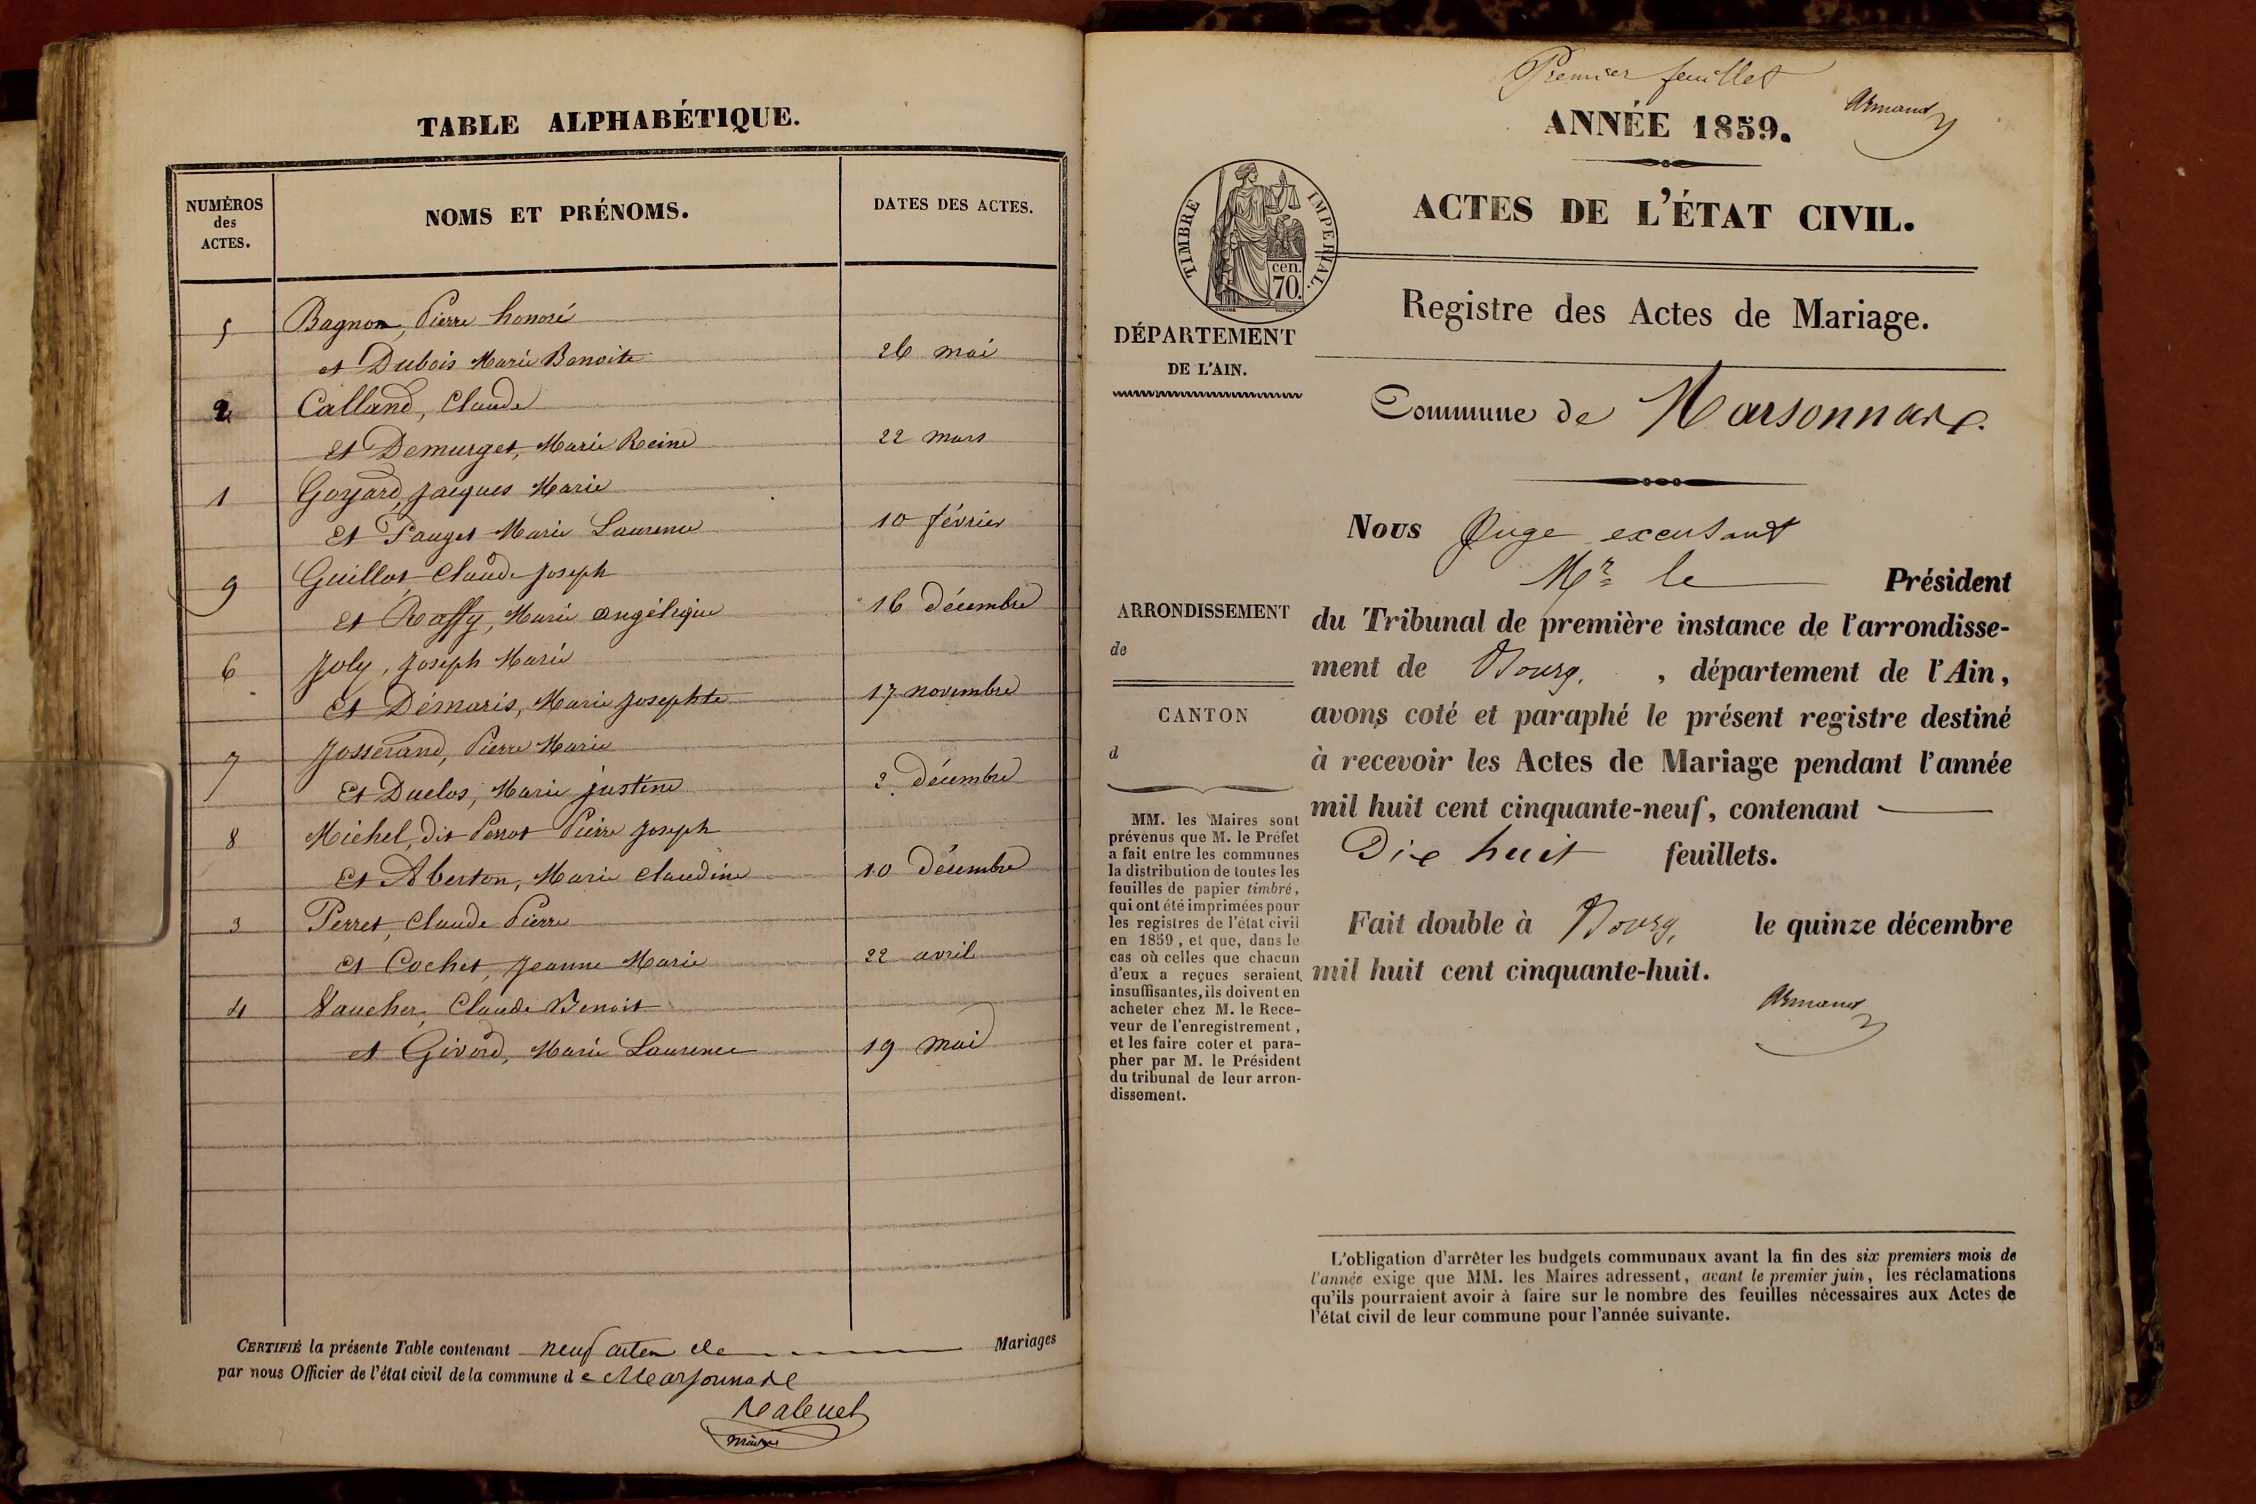 TABLE ALPHABÉTIQUE.
NUMÉROS
des
ACTES.
NOMS ET PRÉNOMS.
DATES DES ACTES.
5 Bagnon, Pierre honoré
et Dubois Marie Benoite 26 mai
2 Calland, Claude
et Demurget, Marie Reine 22 mars
1 Goyard, Jacques Marie
et Pauget Marie Laurence 10 février
9 Guillot, Claude Joseph
et Raffy, Marie angélique 16 décembre
6 Joly, Joseph Marie
et Démaris, Marie Josephte 17 novembre
7 Josserand, Pierre Marie
et Duclos, Marie justine 3 décembre
8 Michel, dit Perrot Pierre Joseph
et Aberton, Marie claudine 10 décembre
3 Perret, Claude Pierre
et Cochet, Jeanne Marie 22 avril
4 Vaucher, Claude Benoit
et Givord, Marie Laurence 19 mai
CERTIFIÉ la présente Table contenant neuf actes de Mariages
par nous Officier de l'état civil de la commune de Marsonnas
maire
Premier feuillet
Armand
ANNÉE 1859.
TIMBRE IMPERIAL.
cen.
70.
ACTES DE L'ÉTAT CIVIL.
Registre des Actes de Mariage.
DÉPARTEMENT
DE L'AIN.
Commune de Marsonnas.
Nous Juge excusant
Mr le Président
du Tribunal de première instance de l'arrondisse-
ment de Bourg, , département de l'Ain,
avons coté et paraphé le présent registre destiné
à recevoir les Actes de Mariage pendant l'année
mil huit cent cinquante-neuf, contenant
Dix huit feuillets.
Fait double à Bourg, le quinze décembre
mil huit cent cinquante-huit.
Armand
ARRONDISSEMENT
de
CANTON
d
MM. les Maires sont
prévenus que M. le Préfet
a fait entre les communes
la distribution de toutes les
feuilles de papier timbré,
qui ont été imprimées pour
les registres de l'état civil
en 1859, et que, dans le
cas où celles que chacun
d'eux a reçues seraient
insuffisantes, ils doivent en
acheter chez M. le Rece-
veur de l'enregistrement,
et les faire coter et para-
pher par M. le Président
du tribunal de leur arron-
dissement.
L'obligation d'arrêter les budgets communaux avant la fin des six premiers mois de
l'année exige que MM. les Maires adressent, avant le premier juin, les réclamations
qu'ils pourraient avoir à faire sur le nombre des feuilles nécessaires aux Actes de
l'état civil de leur commune pour l'année suivante.